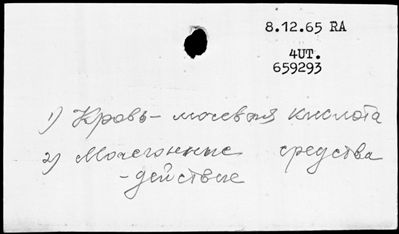 8.12.65 RA
4UT.
659293
1) Кровь – мочевая кислота
2) Мочегонные средства
- действие